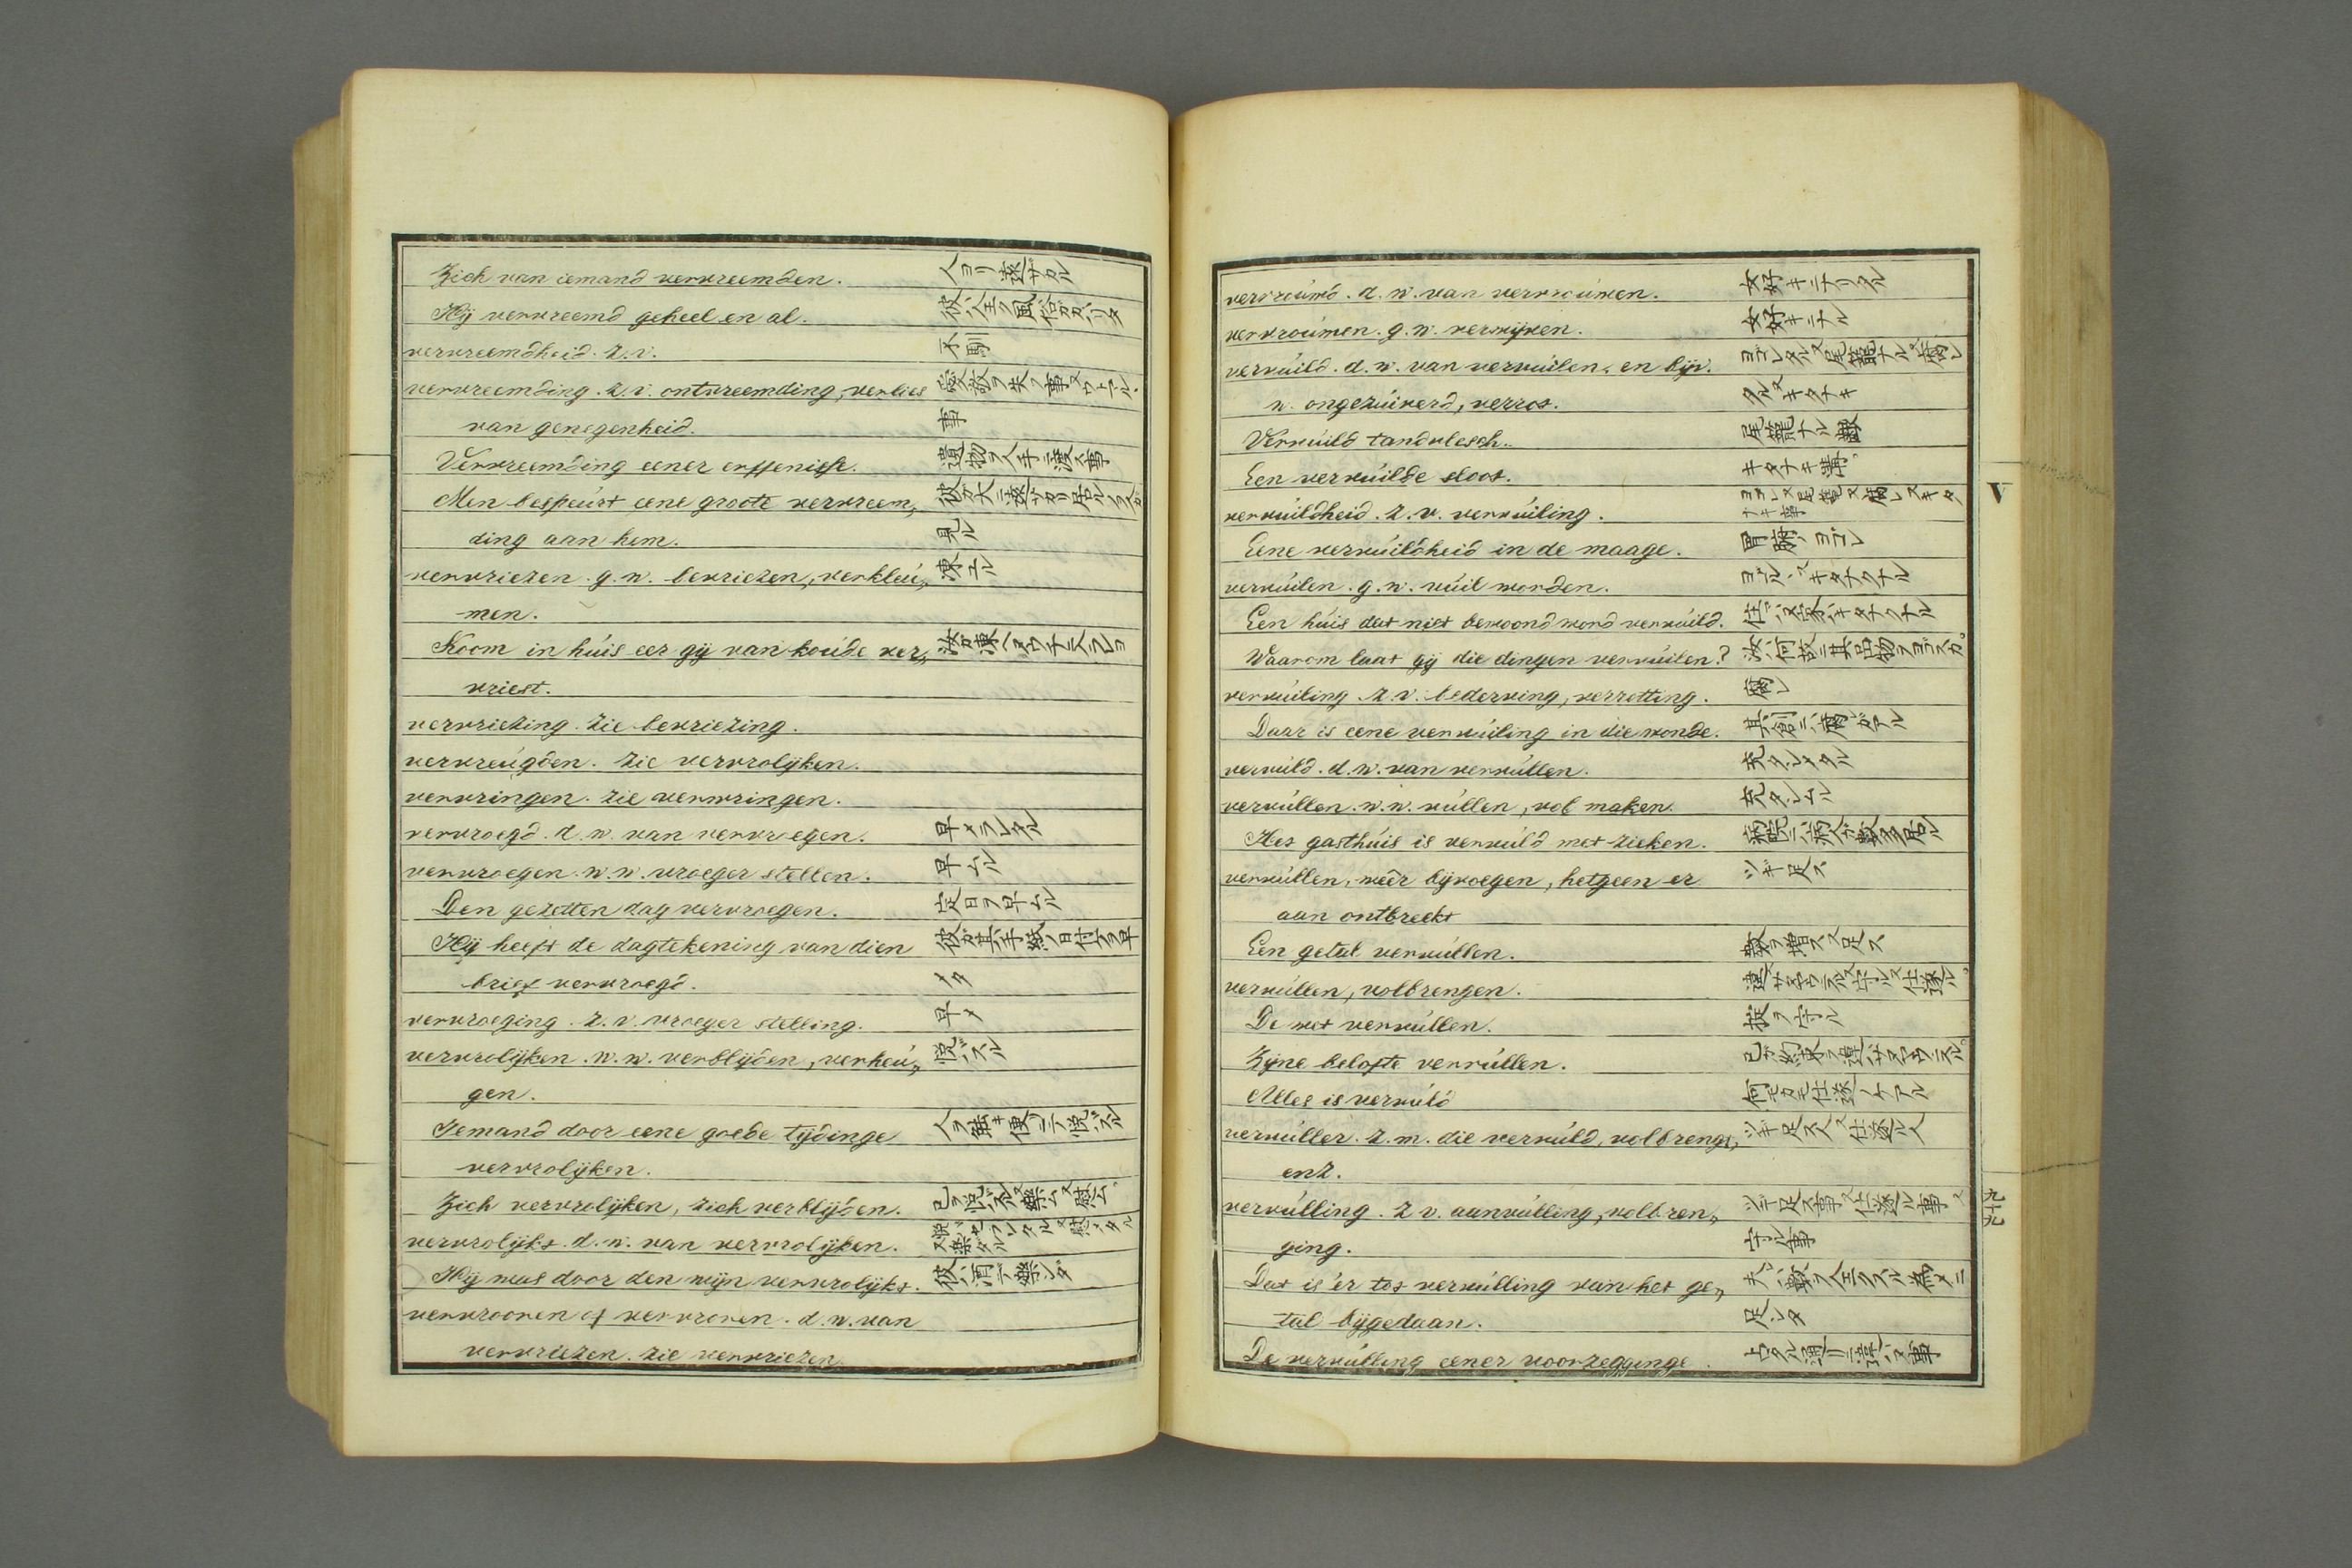 Zich van iemand vervreemden. 人ヨリ遠サカル
Hij vervreemd geheel en al. 彼ハ全ク風俗ガカハリタ
vervreemdheid. z. v. 不馴
vervreemding. z. v. ontvreemding, verlies
van genegenheid. 事
Vervreemding eener erffenisse. 遺物ヲ人手ニ渡ス事
Men bespeúrt eene groote vervreem„
ding aan hem. 見ル
vervriezen. g. w. bevriezen, verkleú„ 凍エル
men.
Koom in húis eer gij van koúde ver„
vriest.
vervriezing. zie bevriezing.
vervreúgden. zie vervrolijken.
vervringen. zie verwringen.
vervroegd. d. w. van vervroegen. 早メラレタル
vervroegen. w. w. vroeger stellen. 早ムル
Den gezetten dag vervroegen. 定日ヲ早ムル
Hij heeft de dagtekening van dien 彼ガ其手紙ノ日付ヲ早
brief vervroegd. メタ
vervroeging. z. v. vroeger stelling. 早メ
vervrolijken. w. w. verblijden, verheú„ 悦バスル
gen.
Iemand door eene goede tijdinge
vervrolijken.
Zich vervrolijken, zich verblijden.
vervrolijkt. d. w. van vervrolijken.
Hij was door den wijn vervrolijkt. 彼ハ酒デ樂ンダ
vervrooren of vervroren. d. w. van
vervriezen. zie vervriezen.
vervroúwd. d. w. van vervroúwen. 女好キニナリタル
vervroúwen. g. w. verwijven. 女好キニナル
vervúild. d. w. van vervúilen, en bijv.
w. ongezúiverd, verrot.
Vervúild tandvlesch. 尾籠ナル齦
Een vervúilde sloot. キタナキ溝
vervúildheid. z. v. vervúiling.
Eene vervúildheid in de maage. 胃腑ノヨゴレ
vervúilen. g. w. vúil worden.
Een húis dat niet bewoond word vervúild. 住ハヌ家ハキタナクナル
Waarom laat gij die dingen vervúilen? 汝ハ何故ニ其品物ヲヨゴスカ
vervúiling. z. v. bederving, verrotting. 腐レ
Daar is eene vervúiling in die wonde. 其創ニハ腐レガアル
vervúld. d. w. van vervúllen. 充タシメタル
vervúllen. w. w. vúllen, vol maken. 充タシムル
Het gasthúis is vervúld met zieken. 病院ニハ病人ガ數多居ル
vervúllen, weêr bijvoegen, hetgeen er ツギ足ス
aan ontbreekt
Een getal vervúllen. 數ヲ増ス又足ス
vervúllen, volbrengen.
De wet vervúllen. 掟ヲ守ル
Zijne belofte vervúllen.
Alles is vervúld
vervúller. z. m. die vervúld, volbrengt, ツギ足ス人又仕遂ル人
enz.
vervúlling. z. v. aanvúlling, volbren„ ツギ足ス事又仕遂ル事又
ging. 守ル事
Dat is 'er tot vervúlling van het ge„ 夫ハ數ヲ全クスル為メニ
tal bijgedaan. 足シタ
De vervúlling eener voorzegginge.
V
九十九